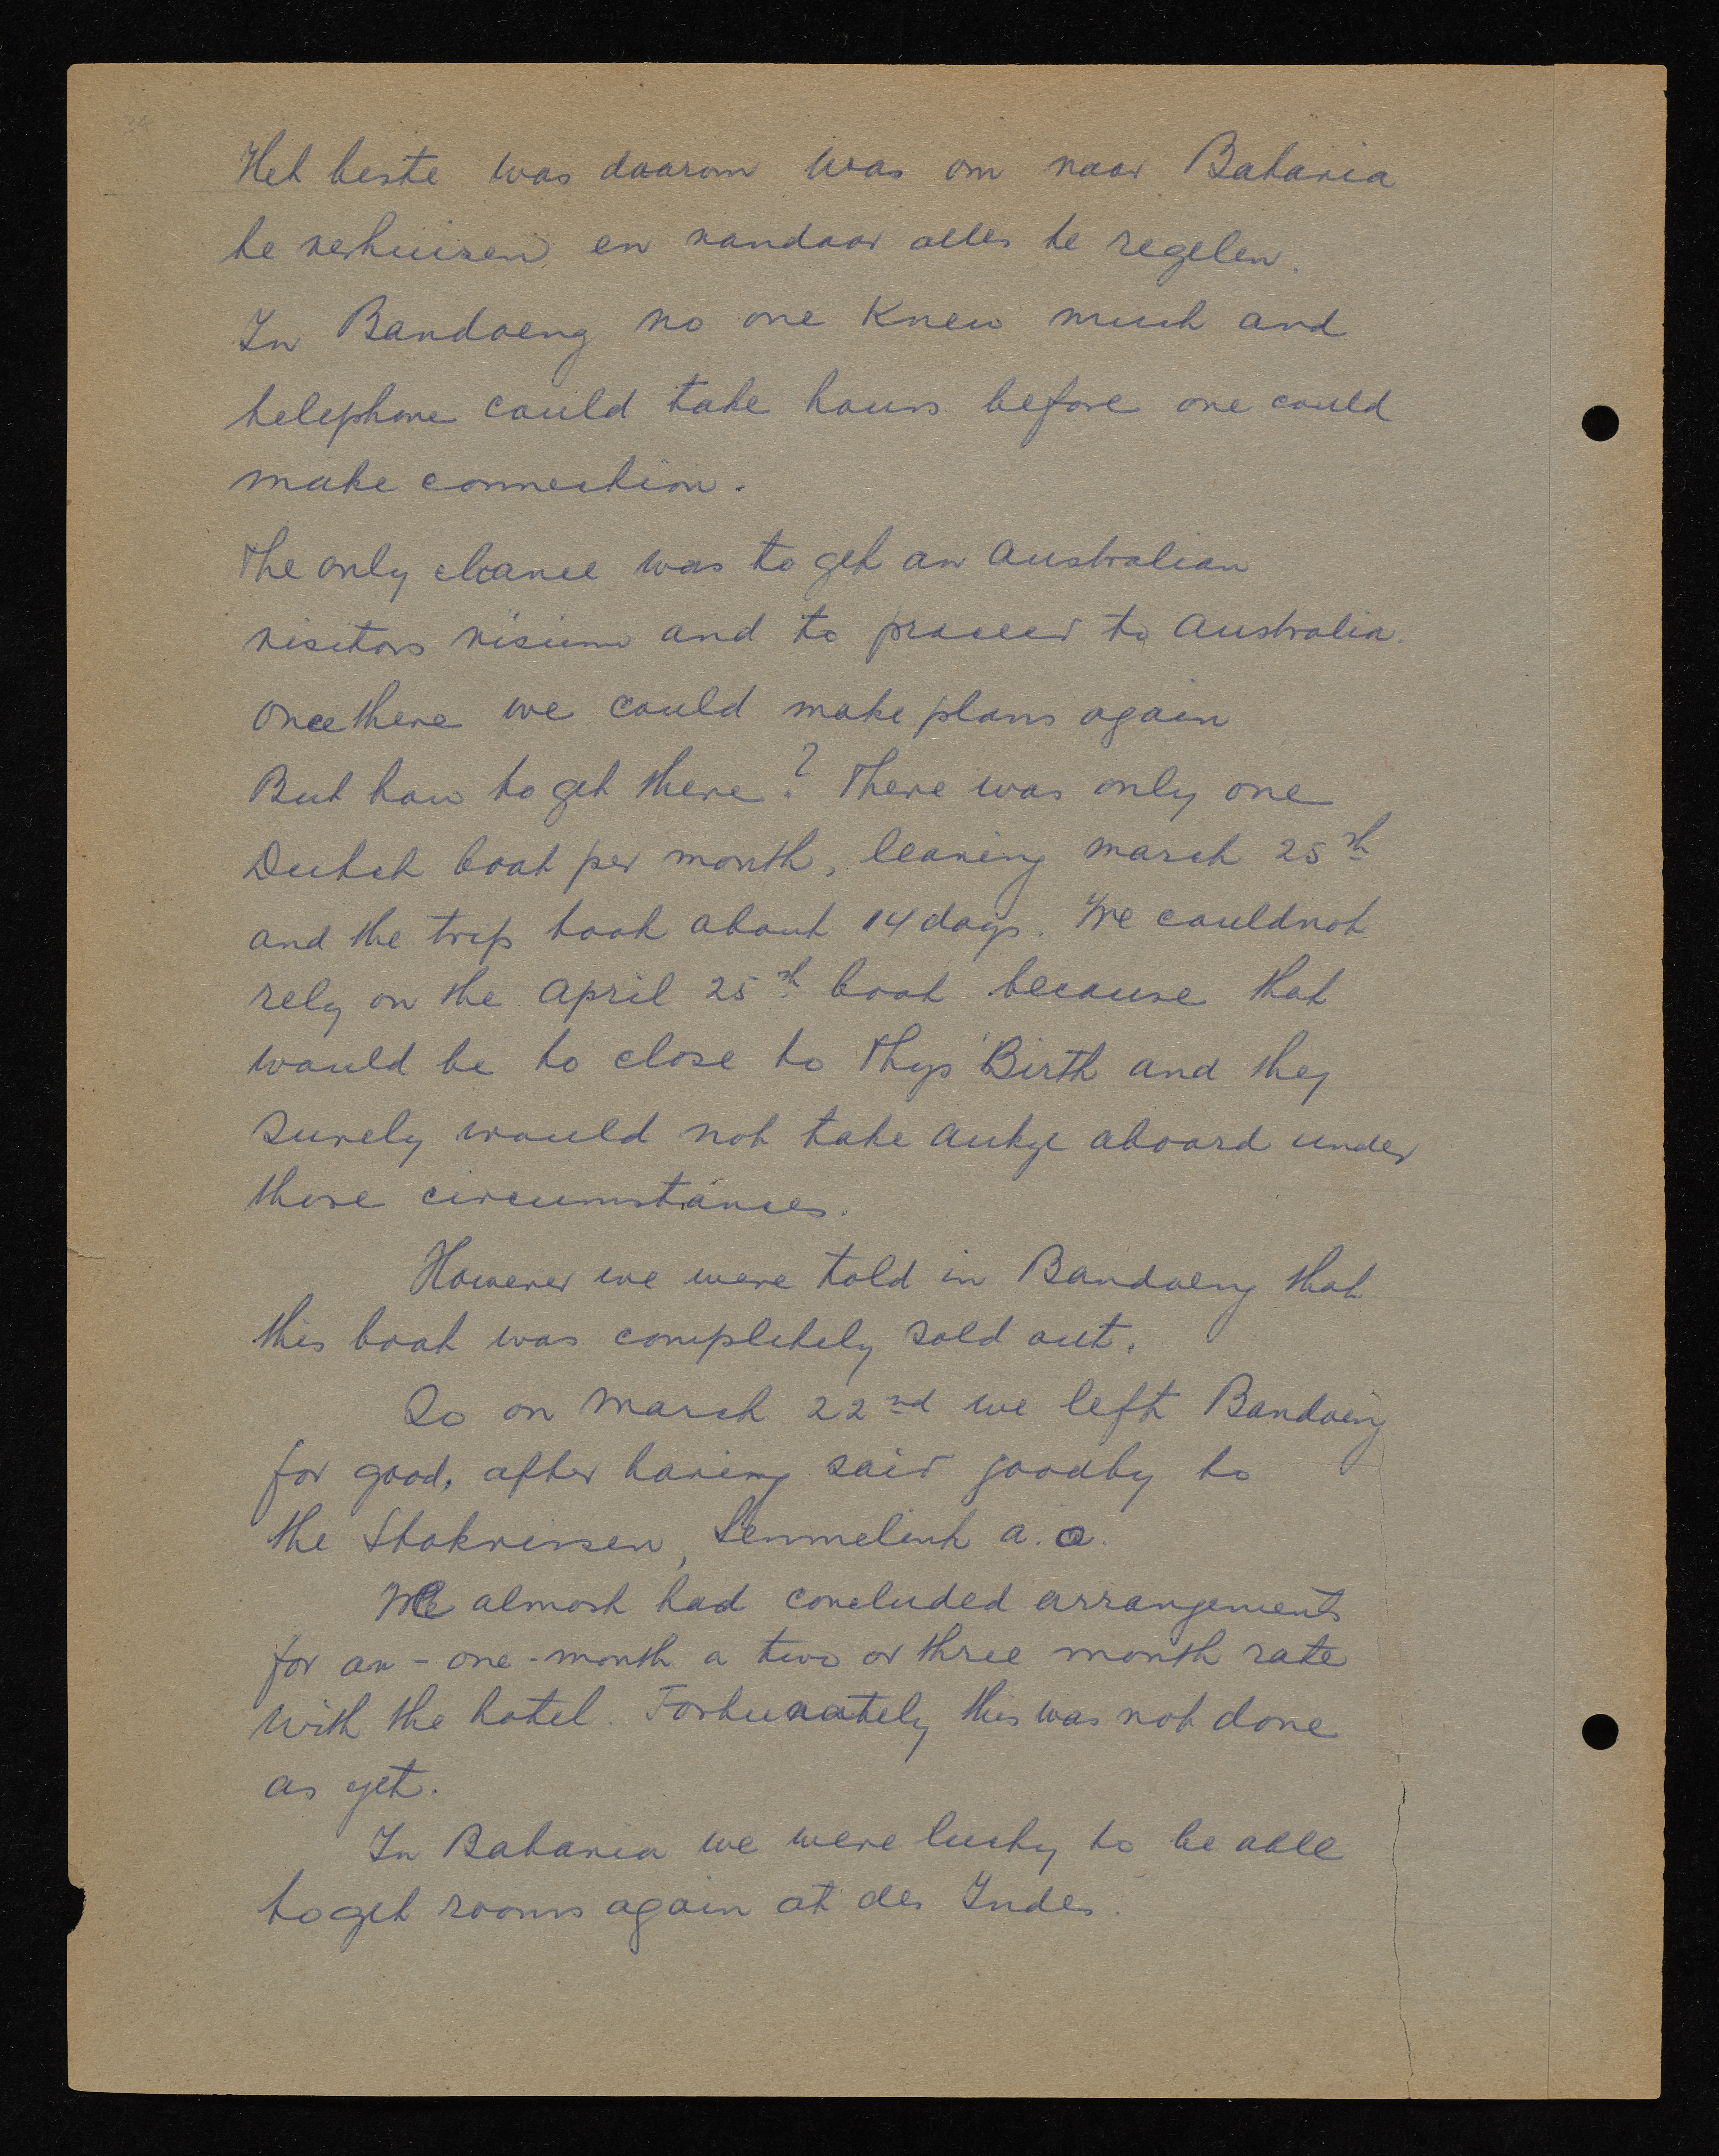 Het beste was daarom was om naar Batavia
te verhuizen en vandaar alles te regelen.
In Bandoeng no one knew much and
telephone could take hours before one could
make connection.
The only chance was to get an Australian
visitors visium and to proceed to Australia.
Once there we could make plans again
But how to get there? There was only one
Dutch boat per month, leaving march 25th
and the trip took about 14 days. We couldnot
rely on the April 25th boat because that
would be to close to Thys' Birth and they
surely would not take Aukje aboard under
those circumstances.
However we were told in Bandoeng that
this boat was completely sold out.
So on March 22nd we left Bandoeng
for good, after having said goodby to
the Stokvissen, Semmelink a.o.
We almost had concluded arrangements
for an - one - month a two or three month rate
with the hotel. Fortunately this was not done
as yet.
In Batavia we were lucky to be able
to get rooms again at des Indes.